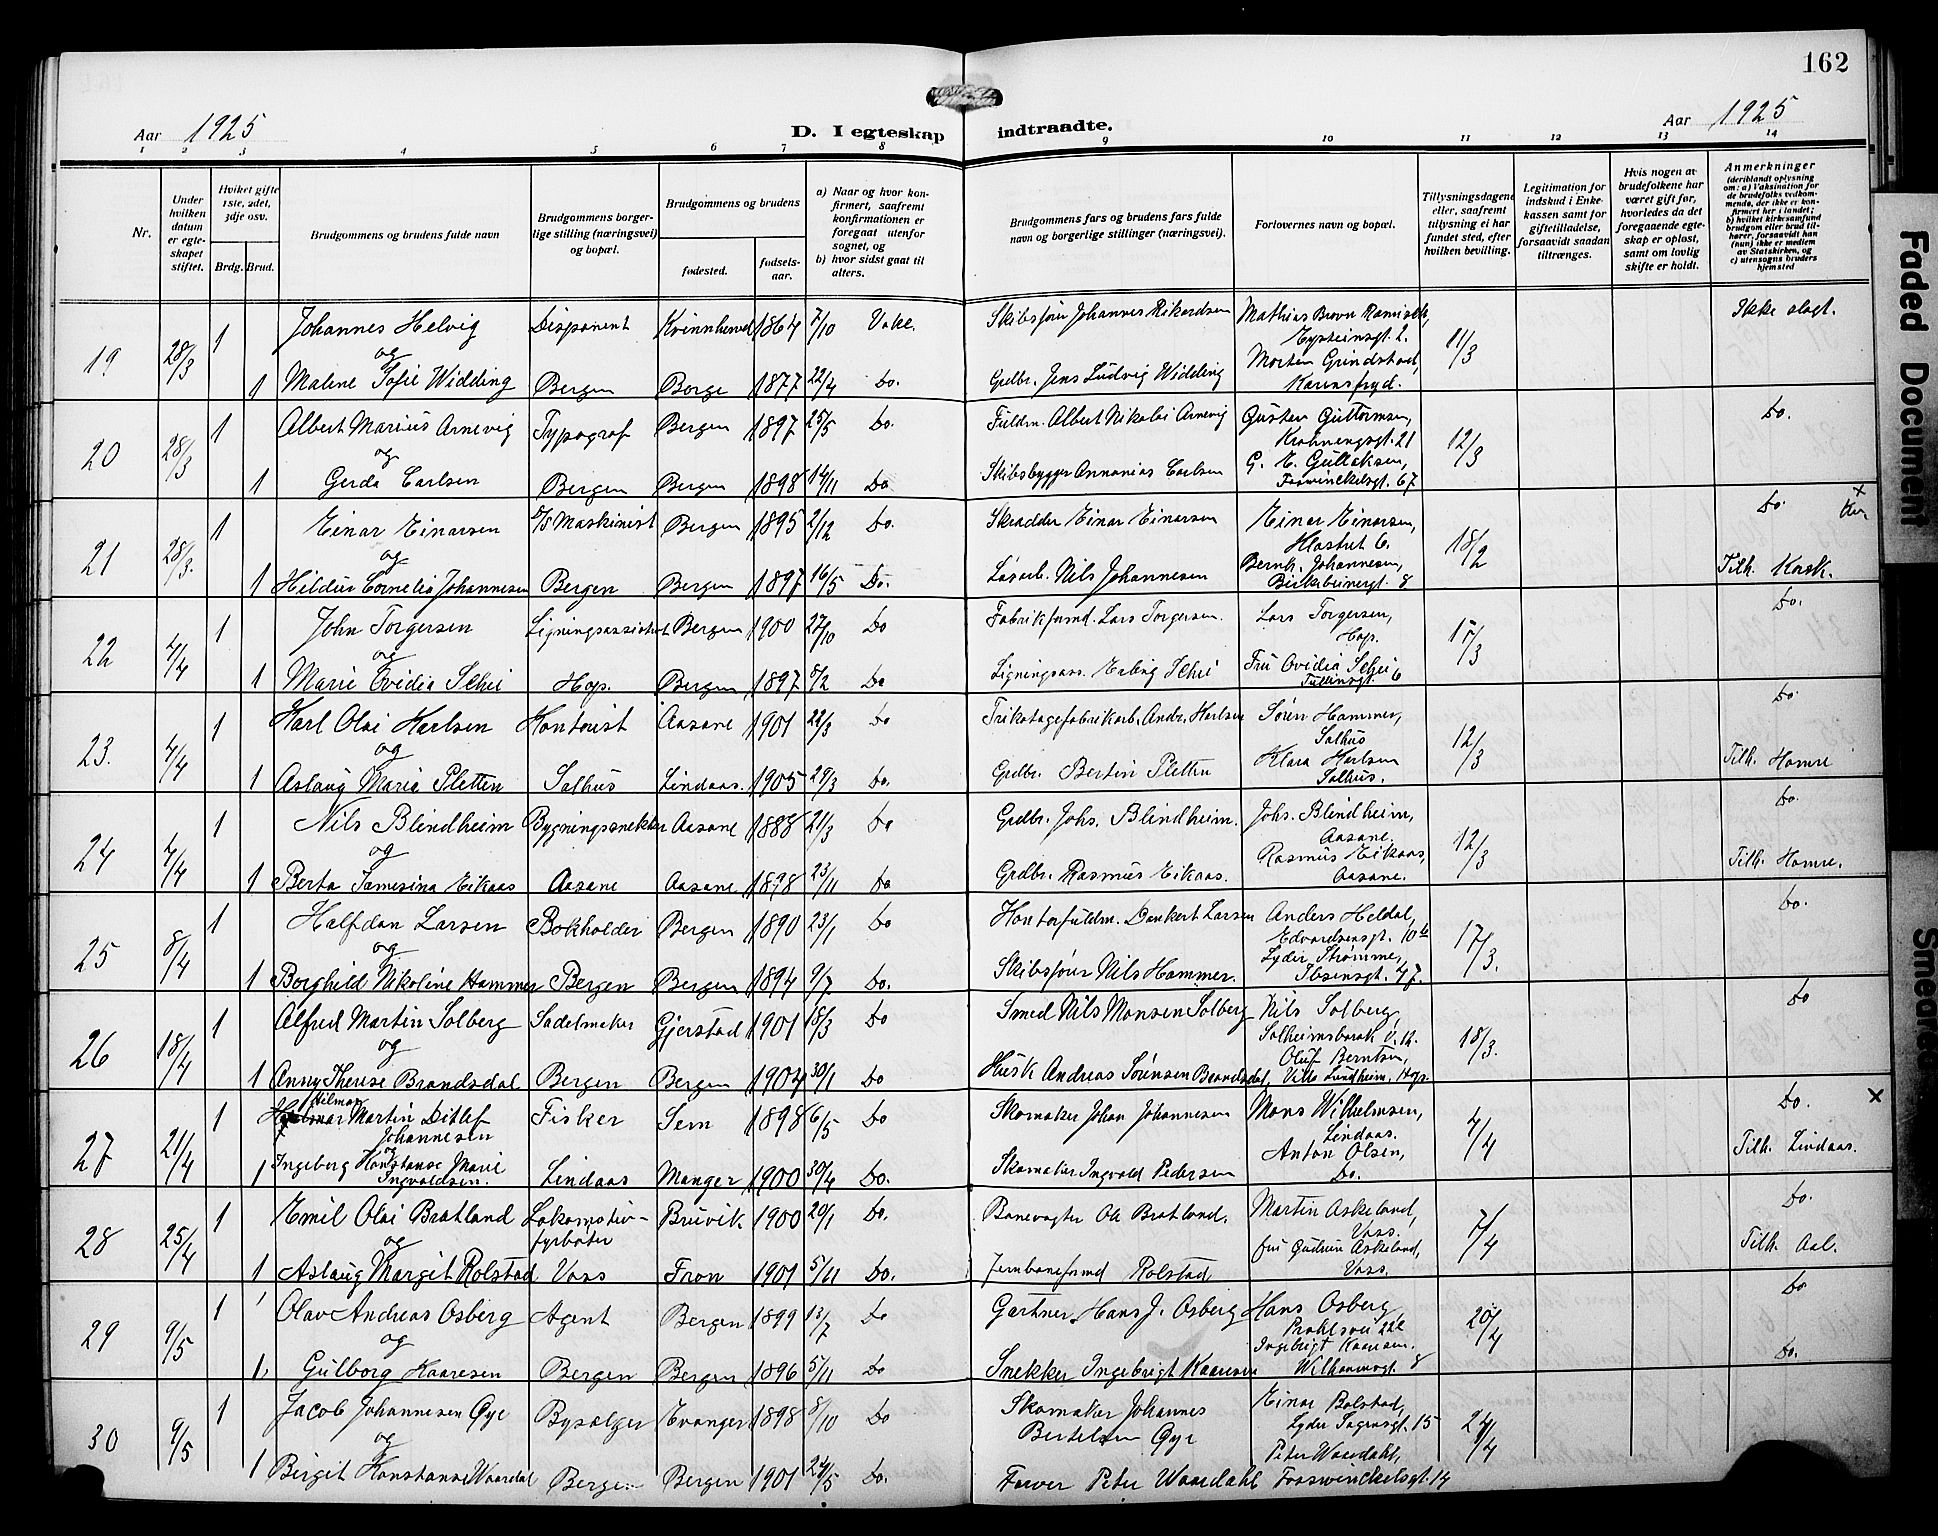 162
Aar 1925
D. I egteskap indtraadte.
Aar 1925
1 2 3 4 5 6 7 8 9 10 11 12 13 14
Nr.
Under hvilken datum er egteskapet stiftet.
Hviket gifte 1ste, 2det, 3dje osv.
Brdg. Brud.
Brudgommens og brudens fulde navn
Brudgommens borgerlige stilling (næringsvei) og bopæl.
Brudgommens og brudens
fødested. fødselsaar.
a) Naar og hvor konfirmert, saafremt konfirmationen er foregaat utenfor sognet, og
b) hvor sidst gaat til alters.
Brudgommens fars og brudens fars fulde navn og borgerlige stillinger (næringsvei).
Forlovernes navn og bopæl.
Tillysningsdagene eller, saafremt tillysning ei har fundet sted, efter hvilken bevilling.
Legitimation for indskud i Enkekassen samt for giftetilladelse, forsaavidt saadan tiltrænges.
Hvis nogen av brudefolkene har været gift før, hvorledes da det foregaaende egteskap er opløst, samt om lovlig skifte er holdt.
Anmerkninger (deriblandt oplysning om: a) Vaksination for de brudefolks vedkommende, der ikke er konfirmert her i landet; b) hvilket kirkesamfund brudgom eller brud tilhører, forsaavidt han (hun) ikke er medlem av Statskirken, og c) utensogns bruders hjemsted
19 28/3 1 Johannes Helvig Disponent Kvinnherred 1864 7/10 Vake. Skibsfører Johannes Rikardsen Mathias Brown Ramisch, Eysteinsgt. 2. 11/3 Ikke slegt.
og
1 Malene Sofie Widding Bergen Borge 1877 22/4 Do. Grdbr. Jens Ludvig Widding Morten Grindstad, Karensfryd.
20 28/3 1 Albert Marius Arnevig Typograf Bergen 1897 25/5 Do. Fuldm. Albert Nikolai Arnevig Gustav Guttormsen, Krohnengsgt. 21 12/3 Do.
og
1 Gerda Carlsen Bergen Bergen 1898 14/11 Do Skibsbygger Annanias Carlsen G. E. Gullaksen, Foswinckelsgt. 67
21 28/3. 1 Einar Einarsen D/S Maskinist Bergen 1895 2/12 Do. Skrædder Einar Einarsen Einar Einarsen, 18/2 Do x
og
1 Hildur Cornelia Johannesen Bergen Bergen 1897 16/5 Do. Løsarb. Nils Johannesen Bernh. Johannesen, Birkebeinergt. 8 Tilh. Kask.
22 4/4 1 John Torgersen Ligningsassistent Bergen 1900 27/10 Do Fabrikformd. Lars Torgersen. Lars Torgersen, Hop. 15/3 Do.
og
1 Marie Ovidia Schei Hop. Bergen 1897 8/2 Do Ligningsass. Erling Schei Fru Ovidia Schei Tullinsgt. 6
23. 4/4 1 Karl Olai Karlsen Kontorist Aasane 1901 22/3 Do Trikotagefabrikarb. Andr. Karlsen Søren Hammer, Salhus 12/3 Do.
og
1 Aslaug Maria Pletten Salhus Lindaas. 1905 29/3 Do. Grdbr. Bertin Pletten Klara Karlsen Salhus. Tilh. Hamre
24 4/4 1 Nils Blindheim Bygningssnekker Aasane 1888 21/3 Do Grdbr. Johs. Blindheim. Johs. Blindheim, Aasane. 12/3 Do.
og
1 Berta Jamesina Eikaas Aasane Aasane 1898 23/11 Do Grdbr. Rasmus Eikaas. Rasmus Eikaas, Aasane. Tilh. Hamre.
25 8/4 1 Halfdan Larsen Bokholder Bergen 1890 23/1 Do Kontorfuldm. Dankert Larsen Anders Heldal, Edvardsensgt. 10b 17/3. Do.
og
1 Borghild Nikoline Hammer Bergen Bergen 1894 9/7 Do. Skibsfører Nils Hammer. Lyder Strømme, Ibsensgt. 47.
26 18/4 1 Alfred Martin Solberg Sadelmaker Gjerstad 1901 18/3 Do Smed Nils Monsen Solberg Nils Solberg, Solheimsbarak V. 12. 18/3. Do
og
1 Anny Therese Brandsdal Bergen Bergen 1904 30/1 Do Husk Andreas Sørensen Brandsdal, Oluf Berntsen, Villa Lundheim, Hop.
27 21/4 1 Hilmar Martin Ditlef Johannesen Fisker Sem 1898 6/5 Do Skomaker Johan Johannesen Mons Wilhelmsen, Lindaas. 4/4 Do. x
og
1 Ingeborg Konstanse Marie Ingvaldsen. Lindaas Manger 1900 30/4 Do. Skomaker Ingvald Pedersen Anton Olsen, Do. Tilh. Lindaas.
28 25/4 1 Emil Olai Bratland Lokomotivfyrbøter Bruvik 1900 20/1 Do. Banevogter Ole Bratland. Martin Askeland, Voss. 7/4 Do.
og
1 Aslaug Margit Rolstad Voss Fron 1901 5/11 Do. Jernbaneformd Rolstad fru Gudrun Askeland, Voss. Tilh. Aal.
29 9/5 1 Olav Andreas Osberg Agent Bergen 1899 13/7 Do Gartner Hans J. Osberg Hans Osberg, 20/4 Do
og
1. Gulborg Kaaresen Bergen Bergen 1896 5/11 Do Snekker Ingebrigt Kaaresen Ingebrigt Kaaresen. Wilhelmsgt. 8 Do.
30 9/5 1 Jacob Johannesen Øye Bysælger Evanger 1898 8/10 Do Skomaker Johannes Bertelsen Øye Einar Bolstad, Lyder Sagensgt. 15 24/4
og
1 Birgit Konstanse Waardal Bergen Bergen 1901 24/5 Do. Farver Peter Waardahl Peter Waardahl, Foswinckelsgt. 14
Faded Document
Smeared